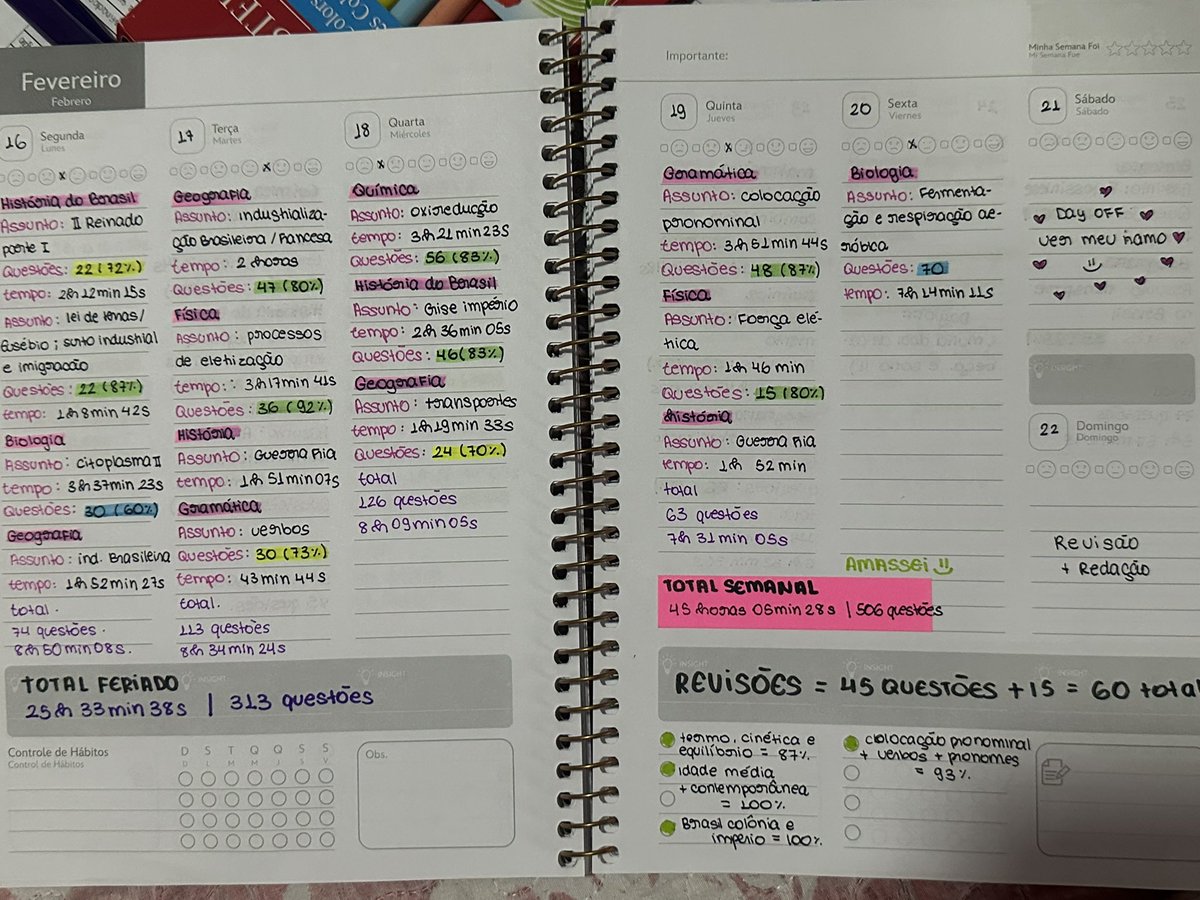 Fevereiro
Febrero
16 Segunda
Lunes
História do Brasil
Assunto: II Reinado
parte I
Questões: 22 (72%)
tempo: 2h12min15s
Assunto: lei de terras/
Eusébio; surto industrial
e imigração
Questões: 22 (87%)
tempo: 1h8min 42s
Biologia
Assunto: citoplasma II
tempo: 3h37min 23s
Questões: 30 (60%)
Geografia
Assunto: ind. Brasileira
tempo: 1h52min 27s
total.
74 questões.
8h50min08s.
17 Terça
Martes
Geografia
Assunto: industrializa-
ção Brasileira / Francesa
tempo: 2 horas
Questões: 47 (80%)
Física
Assunto: processos
de eletização
tempo:: 3h17min 41s
Questões: 36 (92%)
História
Assunto: Guerra Fria
tempo: 1h51min07s
Gramática
Assunto: verbos
Questões: 30 (73%)
tempo: 43min 44s
total.
113 questões
8h 34min 24s
18 Quarta
Miércoles
Química
Assunto: oxirredução
tempo: 3h21min23s
Questões: 56 (83%)
História do Brasil
Assunto: Crise império
tempo: 2h 36min 05s
Questões: 46 (83%)
Geografia
Assunto: transportes
tempo: 1h19min 33s
Questões: 24 (70%)
total
126 questões
8h09min05s
INSIGHT
TOTAL FERIADO
25h 33min38s | 313 questões
Controle de Hábitos
Control de Hábitos
D S T Q Q S S
D L M M J S V
Obs.
Importante:
Minha Semana Foi
Mi Semana Fue
19 Quinta
Jueves
Gramática
Assunto: colocação
pronominal
tempo: 3h51min44s
Questões: 48 (87%)
Física
Assunto: Força elé-
trica
tempo: 1h 46 min
Questões: 15 (80%)
história
Assunto: Guerra Fria
tempo: 1h 52min
total
63 questões
7h 31min 05s
20 Sexta
Viernes
Biologia
Assunto: Fermenta-
ção e respiração ae-
róbica
Questões: 70
tempo: 7h14min11s
AMASSEI
TOTAL SEMANAL
45 horas 05min 28s | 506 questões
21 Sábado
Sábado
DAY OFF
ver meu namo
INSIGHT
22 Domingo
Domingo
Revisão
+ Redação
INSIGHT INSIGHT INSIGHT
REVISÕES = 45 QUESTÕES +15 = 60 total
termo, cinética e
equilíbrio = 87%
idade média
+ contemporânea
= 100%
Brasil colônia e
império = 100%
colocação pronominal
+ verbos + pronomes
= 93%